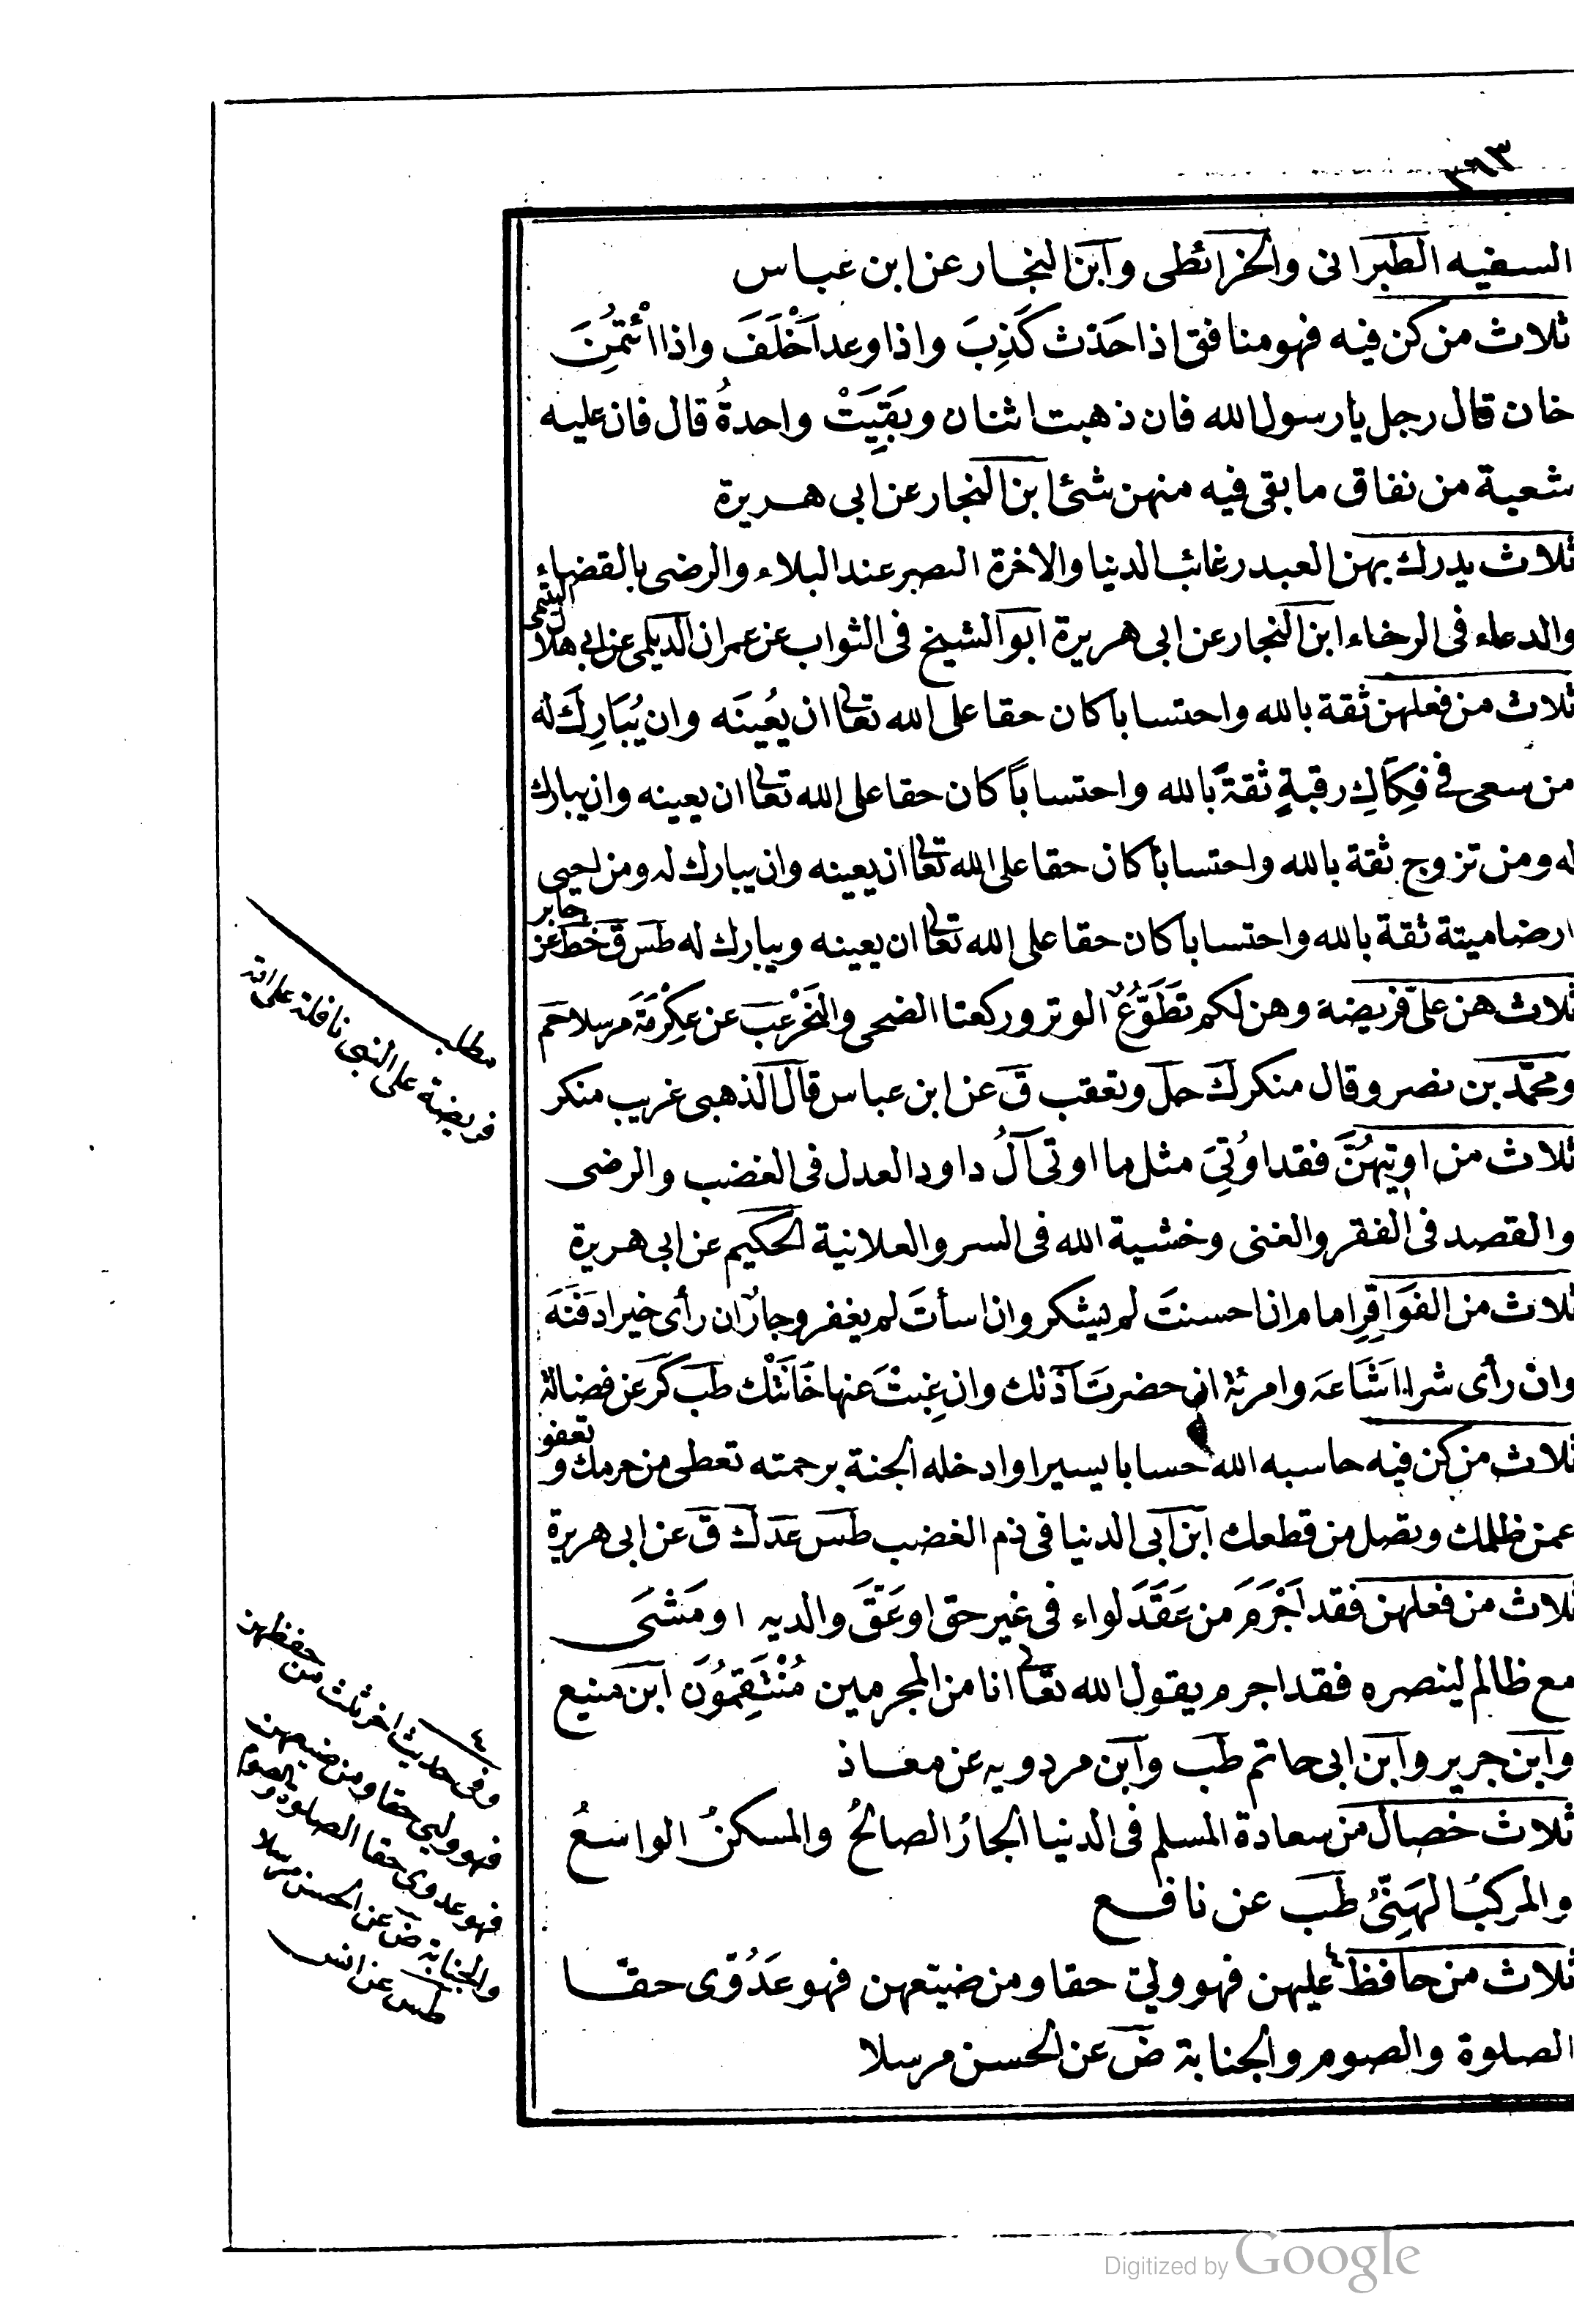 ٢٦٣
السفيه الطبرانى والخرائطى وابن النجار عن ابن عباس
ثلاث من كن فيه فهو منافق اذا حَدَث كَذِبَ واذا وعد اَخْلَفَ واذا ائْتُمِنَ
خان قال رجل يا رسول الله فان ذهبت اثنان وبَقِيَتْ واحدةُ قال فان عليه
شعبة من نفاق ما بقى فيه منهن شئ ابن النجار عن ابى هريرة
ثلاث يدرك بهن العبد رغائب الدنيا والاخرة الصبر عند البلاء والرضى بالقضاء
والدعاء فى الرخاء ابن النجار عن ابى هريرة ابو الشيخ فى الثواب عن عمران الديلمى عن ابى هلال التيمى
ثلاث من فعلهن ثقة بالله واحتسابا كان حقا على الله تعالى ان يُعينَه وان يُبَارِكَ له
من سعى فى فِكَاكِ رقبةٍ ثقةً بالله واحتساباً كان حقا على الله تعالى ان يعينه وان يبارك
له ومن تزوج ثقة بالله واحتساباً كان حقا على الله تعالى ان يعينه وان يبارك له ومن احيى
ارضا ميتة ثقة بالله واحتسابا كان حقا على الله تعالى ان يعينه ويبارك له طس ق خط عن جابر
ثلاث هن علىّ فريضة وهن لكم تَطَوُّعٌ الوتر وركعتا الضحى والنحر عب عن عِكْرِمَةَ مرسلا حم
ومحمّد بن نصر وقال منكر ك حل وتعقب ق عن ابن عباس قال الذهبى غريب منكر
ثلاث من اوتيهُنَّ فقد اوُتِىَ مثل ما اوتى آلُ داود العدل فى الغضب والرضى
والقصد فى الفقر والغنى وخشية الله فى السر والعلانية الحكيم عن ابى هريرة
ثلاث من الفَوَاقِرِ امام ان احسنتَ لم يشكر وان اسأتَ لم يغفر وجارٌ ان رأى خيرا دَفَنَهَ
وان رأى شرا اَشَاعَه وامرئة ان حضرتَ آذَتك وان غِبتْ عنها خَانَتْك طب كر عن فضالة
ثلاث من كن فيه حاسبه الله حسابا يسيرا وادخله الجنة برحمته تعطى من حرمك وتعفو
عمن ظلمك وتصل من قطعك ابن ابى الدنيا فى ذم الغضب طس عد ك ق عن ابى هريرة
ثلاث من فعلهن فقد اَجْرَمَ من عَقَدَ لواء فى غير حق او عَقَّ والديه او مَشَى
مع ظالم لينصره فقد اجرم يقول الله تعالى انا من المجرمين مُنْتَقِمُونَ ابن منيع
وابن جرير وابن ابى حاتم طب وابن مردويه عن معاذ
ثلاث خصال من سعادة المسلم فى الدنيا الجارُ الصالحُ والمسكنُ الواسعُ
والمركبُ الهَنِّئُ طب عن نافع
ثلاث من حافظ ٤ عليهن فهو ولىّ حقا ومن ضيّعهن فهو عَدُوّى حقّا
الصلوة والصوم والجنابة ض عن الحسن مرسلا
مطلب
فريضة على النبى نافلة على امته
٤
وفى حديث اخر ثلث من حفظهن
فهو وليى حقا ومن ضيعهن
فهو عدوى حقا الصلوة والصوم
والجنابة ض عن الحسن مرسلا
طس عن انس
Digitized by Google